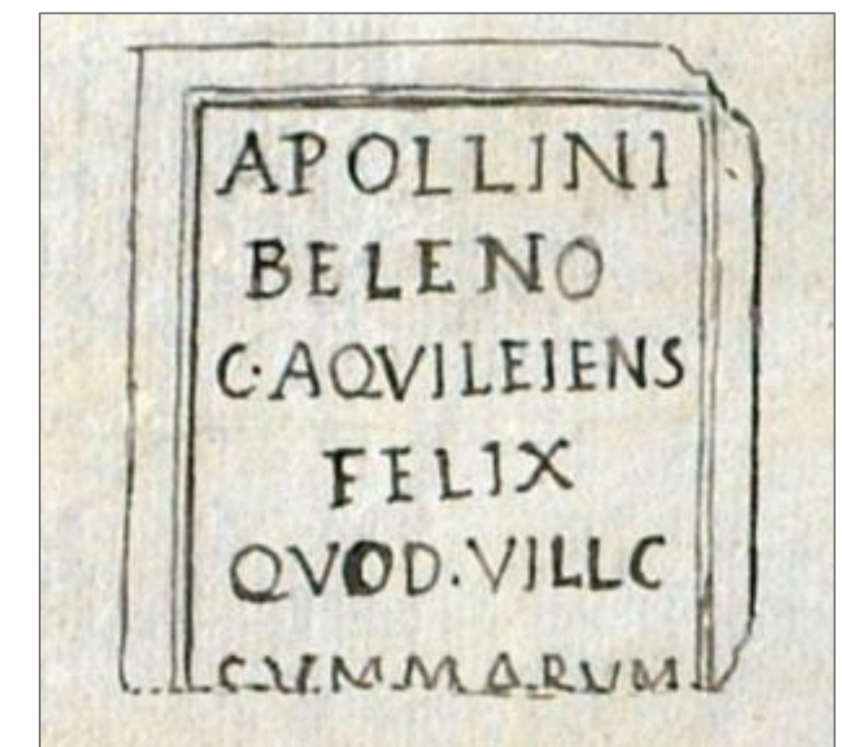 APOLLINI
BELENO
C·AQVILEIENS
FELIX
QVOD.VILLC
CVMMARVM